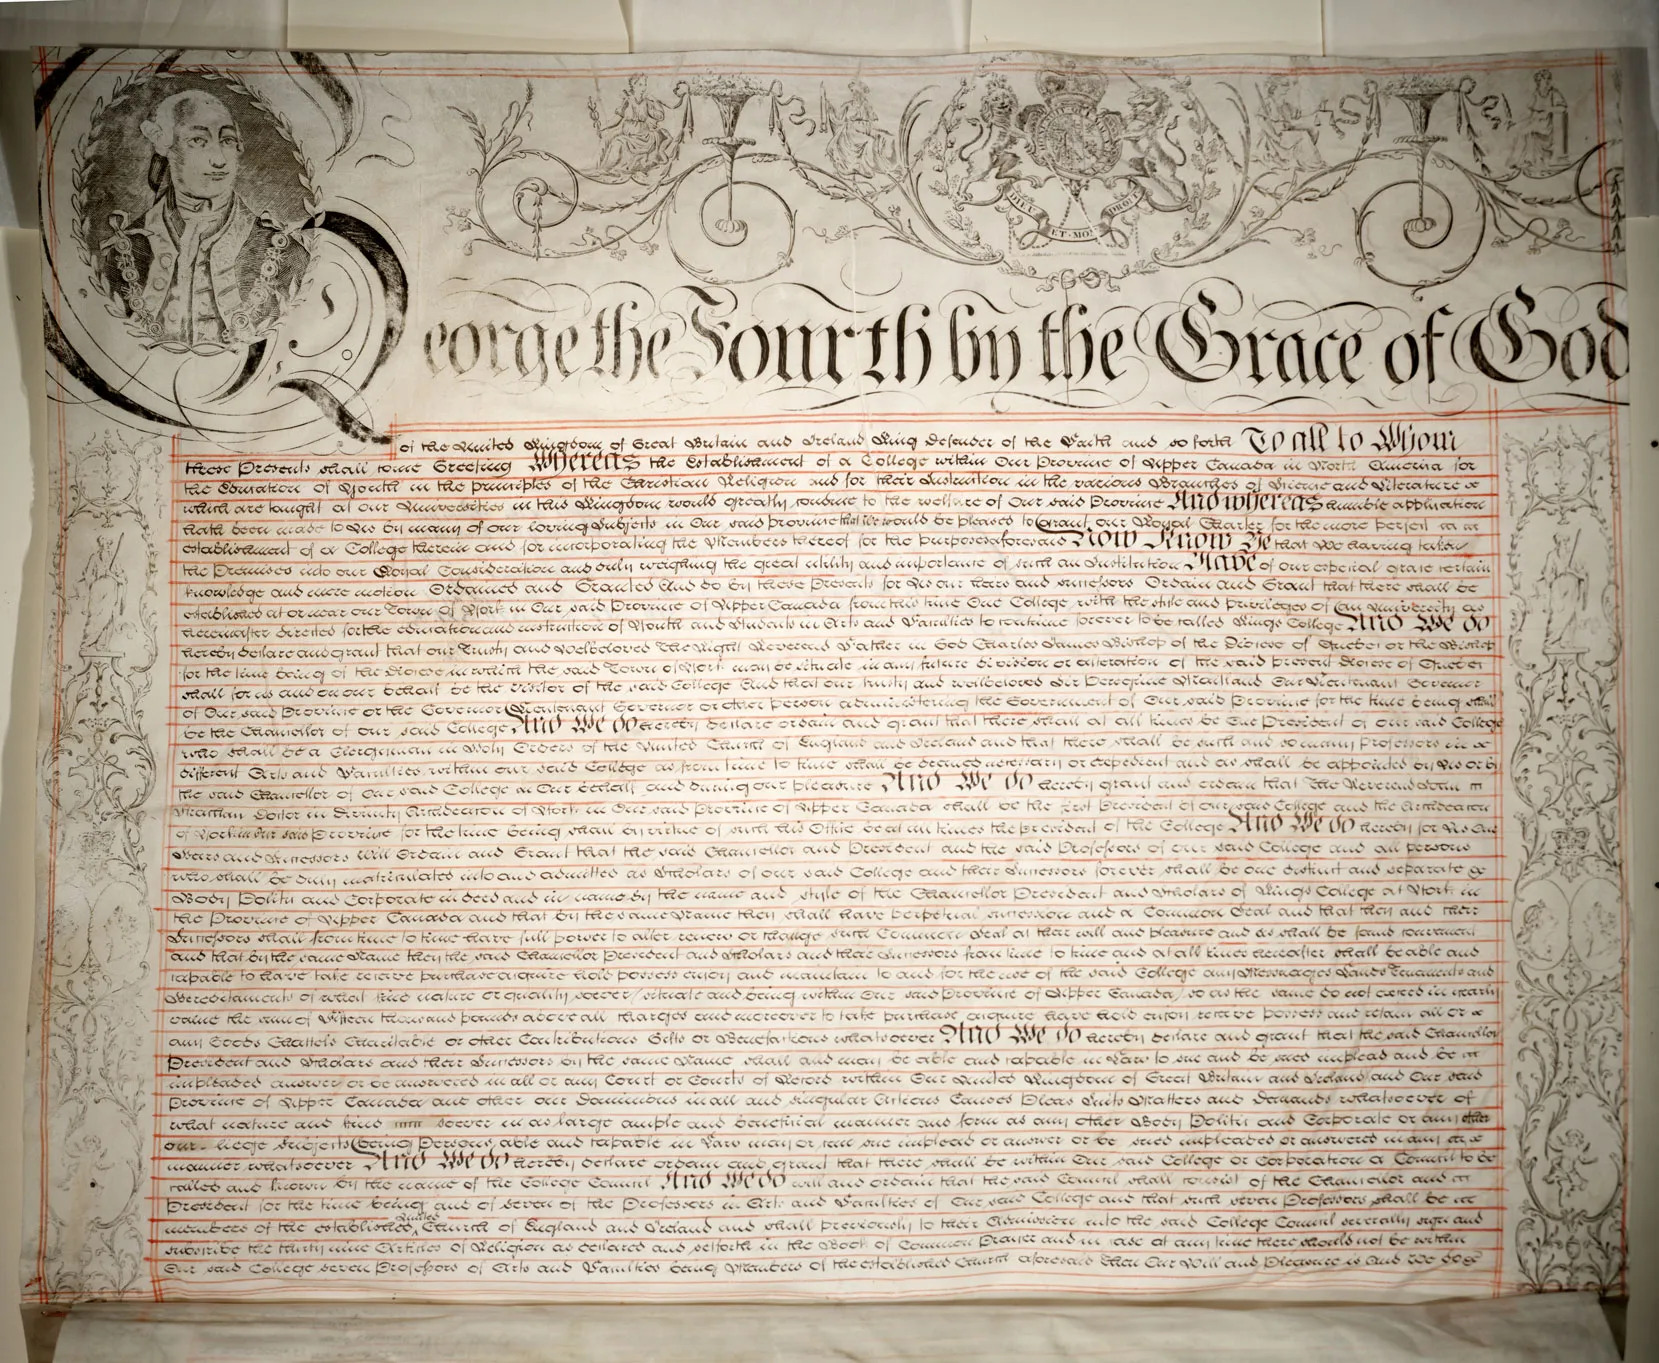 DIEU ET MON DROIT
George the Fourth by the Grace of God
of the United Kingdom of Great Britain and Ireland King Defender of the Faith and so forth To all to Whom
these Presents shall come Greeting Whereas the Establishment of a College within Our Province of Upper Canada in North America for
the Education of Youth in the principles of the Christian Religion and for their Instruction in the various Branches of Science and Literature
which are taught at our Universities in this Kingdom would greatly conduce to the welfare of Our said Province And whereas humble application
hath been made to Us by many of our loving Subjects in Our said province that We would be pleased to Grant our Royal Charter for the more perfect
establishment of a College therein and for incorporating the Members thereof for the purposes aforesaid Now Know Ye that We having taken
the Premises into our Royal Consideration and duly weighing the great utility and importance of such an Institution Have of our especial grace certain
knowledge and mere motion Ordained and Granted And do by these Presents for Us our heirs and successors Ordain and Grant that there shall be
established at or near our Town of York in Our said Province of Upper Canada from this time One College with the style and privileges of an University as
hereinafter directed for the education and instruction of Youth and Students in Arts and Faculties to continue forever to be called Kings College And We do
hereby declare and grant that our Trusty and Welbeloved The Right Reverend Father in God Charles James Bishop of the Diocese of Quebec or the Bishop
for the time being of the Diocese in which the said Town of York may be situate in any future division or alteration of the said present Diocese of Quebec
shall for us and on our behalf be the visitor of the said College And that our trusty and wellbeloved Sir Peregrine Maitland Our Lieutenant Governor
of Our said Province or the Governor Lieutenant Governor or other person administering the Government of Our said Province for the time being shall
be the Chancellor of our said College And We do hereby declare ordain and grant that there shall at all times be One President of our said College
who shall be a Clergyman in Holy Orders of the United Church of England and Ireland and that there shall be such and so many professors in
different Arts and Faculties within our said College as from time to time shall be deemed necessary or expedient and as shall be appointed by Us or by
the said Chancellor of Our said College in Our behalf and during our pleasure And We do hereby grant and ordain that The Reverend John
Strachan Doctor in Divinity Archdeacon of York in Our said Province of Upper Canada shall be the first President of our said College and the Archdeacon
of York in Our said Province for the time being shall by virtue of such his Office be at all times the president of the College And We do hereby for Us Our
Heirs and Successors Will Ordain and Grant that the said Chancellor and President and the said Professors of our said College and all persons
who shall be duly matriculated into and admitted as Scholars of our said College and their Successors forever shall be one distinct and separate
Body Politic and Corporate in deed and in name by the name and style of the Chancellor President and Scholars of Kings College at York in
the Province of Upper Canada and that by the same Name they shall have perpetual succession and a Common Seal and that they and their
Successors shall from time to time have full power to alter renew or change such Common Seal at their will and pleasure and as shall be found convenient
and that by the same Name they the said Chancellor President and Scholars and their Successors from time to time and at all times hereafter shall be able and
capable to have take receive purchase acquire hold possess enjoy and maintain to and for the use of the said College any Messuages Lands Tenements and
Hereditaments of what kind nature or quality soever situate and being within Our said Province of Upper Canada so as the same do not exceed in yearly
value the sum of Fifteen thousand pounds above all charges and moreover to take purchase acquire have hold enjoy receive possess and retain all or
any Goods Chattels Charitable or other Contributions Gifts or Benefactions whatsoever And We do hereby declare and grant that the said Chancellor
President and Scholars and their Successors by the same Name shall and may be able and capable in Law to sue and be sued implead and be
impleaded answer or be answered in all or any Court or Courts of Record within Our United Kingdom of Great Britain and Ireland and Our said
Province of Upper Canada and other our Dominions in all and singular Actions Causes Pleas Suits Matters and Demands whatsoever of
what nature and kind soever in as large ample and beneficial manner and form as any other Body Politic and Corporate or any other
our liege Subjects being Persons able and capable in Law may or can sue implead or answer or be sued impleaded or answered in any
manner whatsoever And We do hereby declare ordain and grant that there shall be within Our said College or Corporation a Council to be
called and known by the name of the College Council And We do will and ordain that the said Council shall consist of the Chancellor and
President for the time being and of seven of the Professors in Arts and Faculties of Our said College and that such seven Professors shall be
members of the established United Church of England and Ireland and shall previously to their Admission into the said College Council severally sign and
subscribe the thirty nine Articles of Religion as declared and set forth in the Book of Common Prayer and in case at any time there should not be within
Our said College seven Professors of Arts and Faculties being Members of the established Church aforesaid then Our Will and Pleasure is And We do